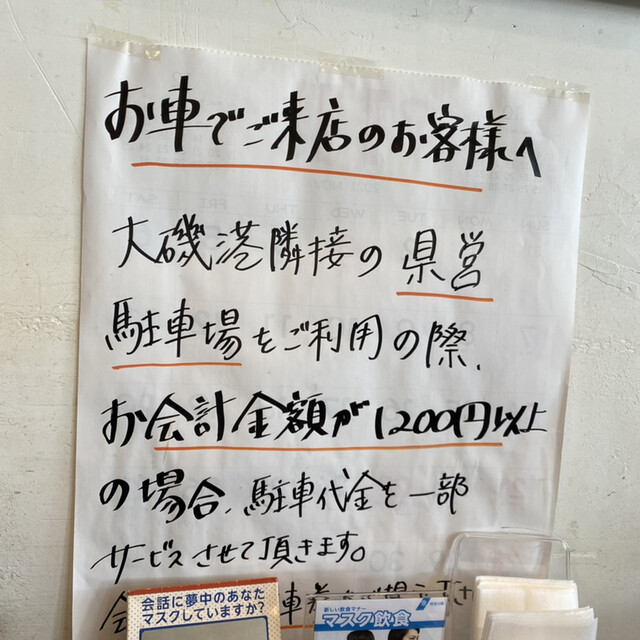 お車でご来店のお客様へ
大磯港隣接の県営
駐車場をご利用の際、
お会計金額が1200円以上
の場合、駐車代金を一部
サービスさせて頂きます。
会話に夢中のあなた
マスクしていますか?
新しい飲食マナー
マスク飲食